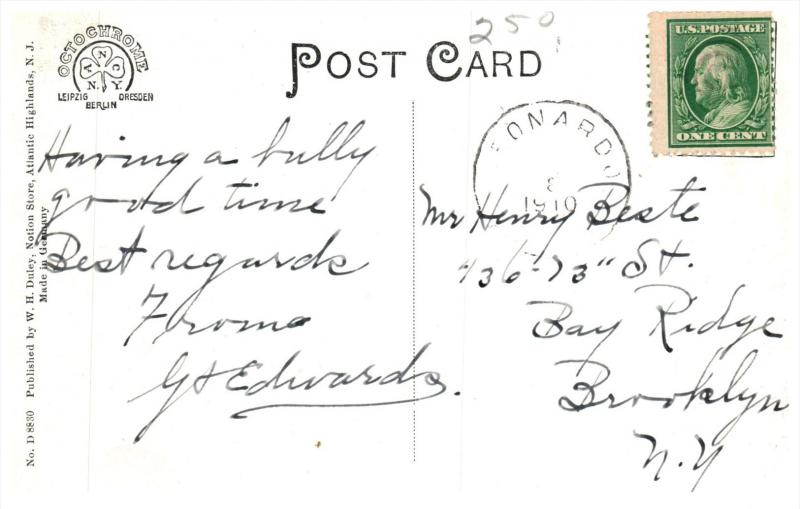 250
POST CARD
U.S. POSTAGE
ONE CENT
OCTOCHROME
A N C
N.Y.
LEIPZIG DRESDEN
BERLIN
EONARDO
8
1910
Having a bully
good time
Best regards
From
G H Edwards.
Mr Henry Beste
736-73" St.
Bay Ridge
Brooklyn
N.Y
No. D 8830 Published by W. H. Duley, Notion Store, Atlantic Highlands, N. J.
Made in Germany